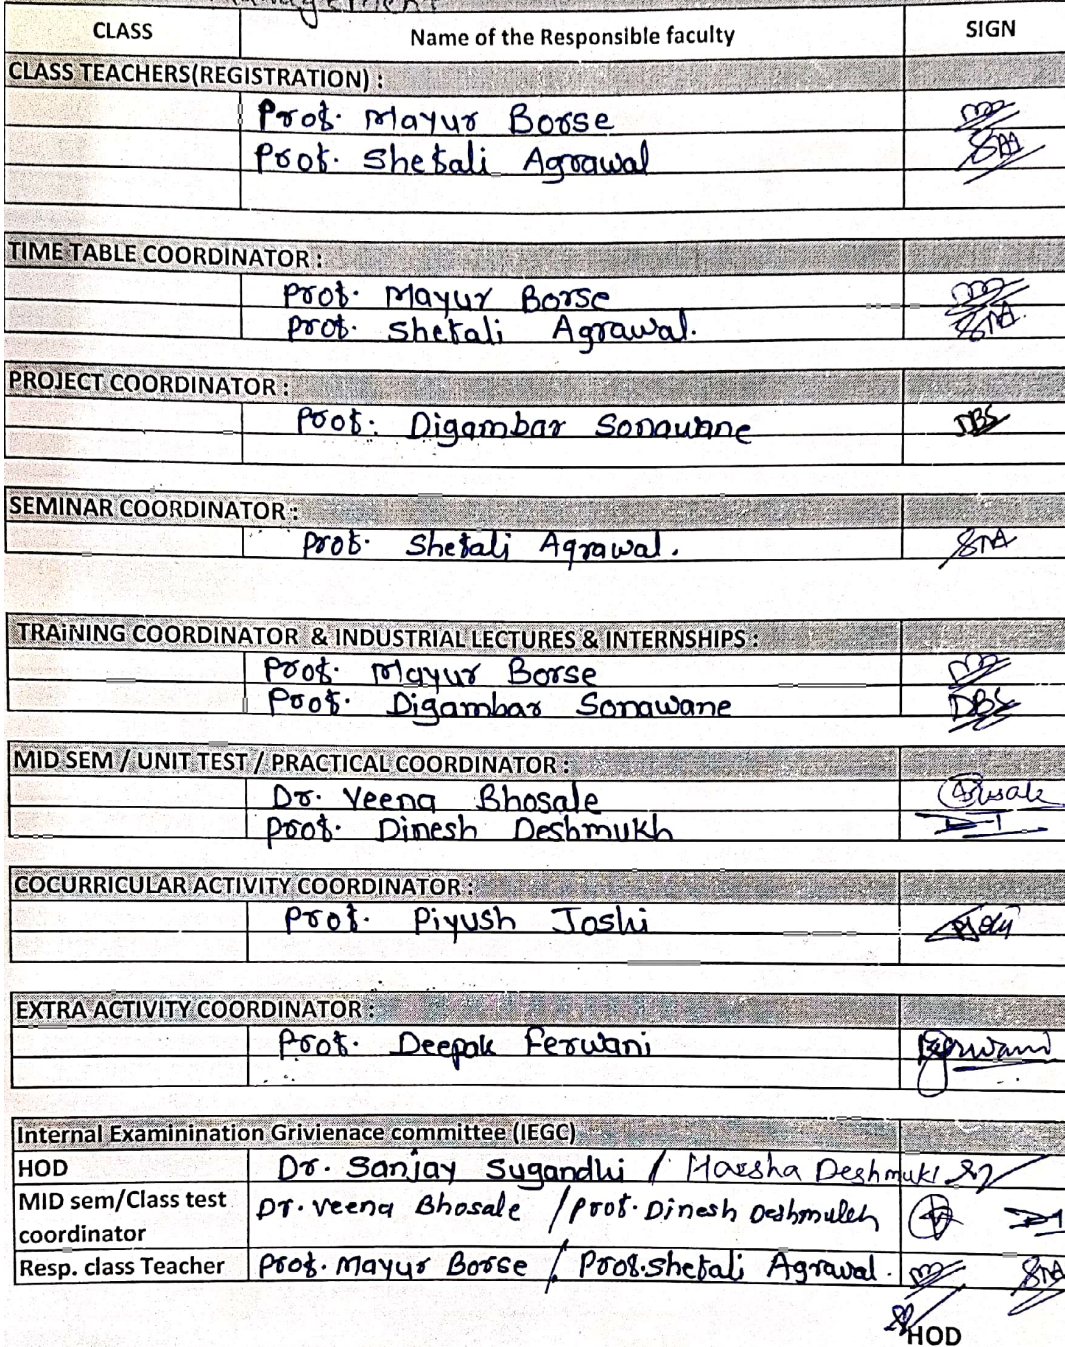 CLASS Name of the Responsible faculty SIGN
CLASS TEACHERS(REGISTRATION) :
Prof. Mayur Borse
Prof. Shefali Agrawal
TIME TABLE COORDINATOR :
Prof. Mayur Borse
Prof. Shefali Agrawal.
PROJECT COORDINATOR :
Prof. Digambar Sonawane DBS
SEMINAR COORDINATOR :
Prof. Shefali Agrawal. SNA
TRAINING COORDINATOR & INDUSTRIAL LECTURES & INTERNSHIPS :
Prof. Mayur Borse
Prof. Digambar Sonawane DBS
MID SEM / UNIT TEST / PRACTICAL COORDINATOR :
Dr. Veena Bhosale
Prof. Dinesh Deshmukh
COCURRICULAR ACTIVITY COORDINATOR :
Prof. Piyush Joshi
EXTRA ACTIVITY COORDINATOR :
Prof. Deepak Ferwani
Internal Examinination Grivienace committee (IEGC)
HOD Dr. Sanjay Sugandhi / Harsha Deshmukh
MID sem/Class test
coordinator Dr. Veena Bhosale / Prof. Dinesh Deshmukh
Resp. class Teacher Prof. Mayur Borse / Prof. Shefali Agrawal.
HOD